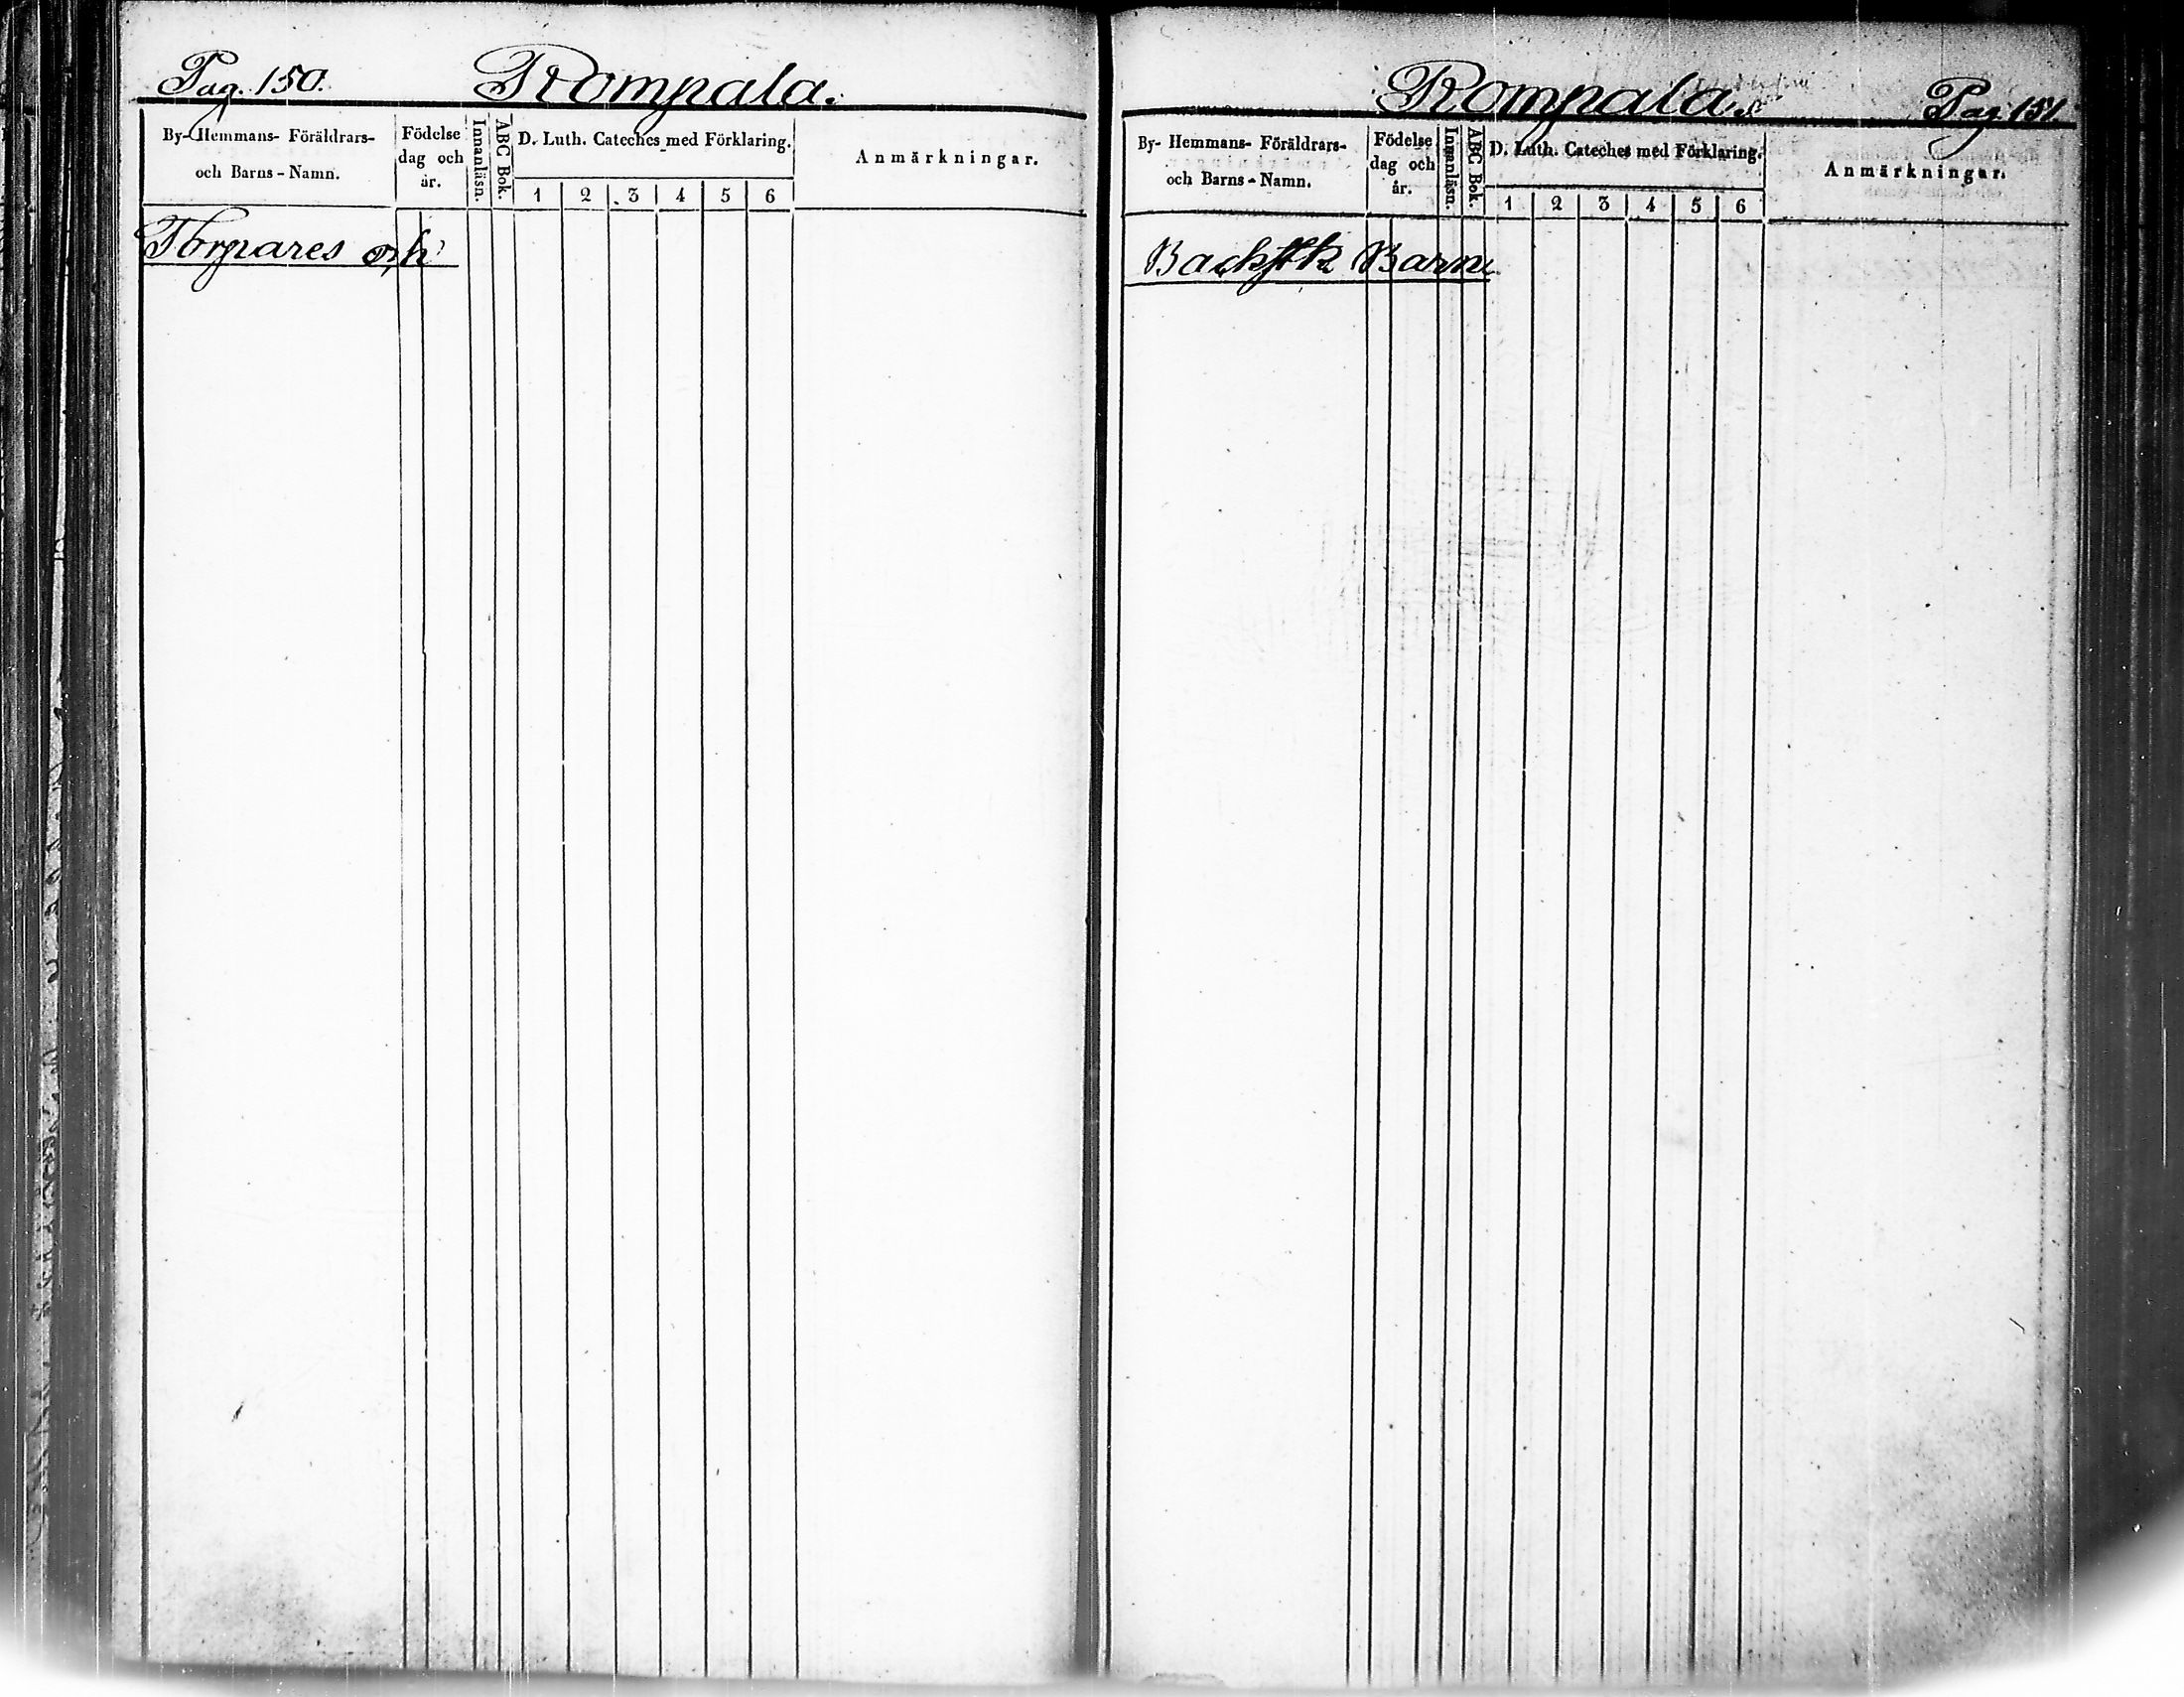 Pag. 150. Rompala.
By- Hemmans- Föräldrars- och Barns - Namn.
Födelse dag och år.
Innanläsn.
ABC Bok.
D. Luth. Cateches med Förklaring.
1 2 3 4 5 6
Anmärkningar.
Torpares och
Rompala. Pag. 151.
By- Hemmans- Föräldrars- och Barns - Namn.
Födelse dag och år.
Innanläsn.
ABC Bok.
D. Luth. Cateches med Förklaring.
1 2 3 4 5 6
Anmärkningar.
Barn